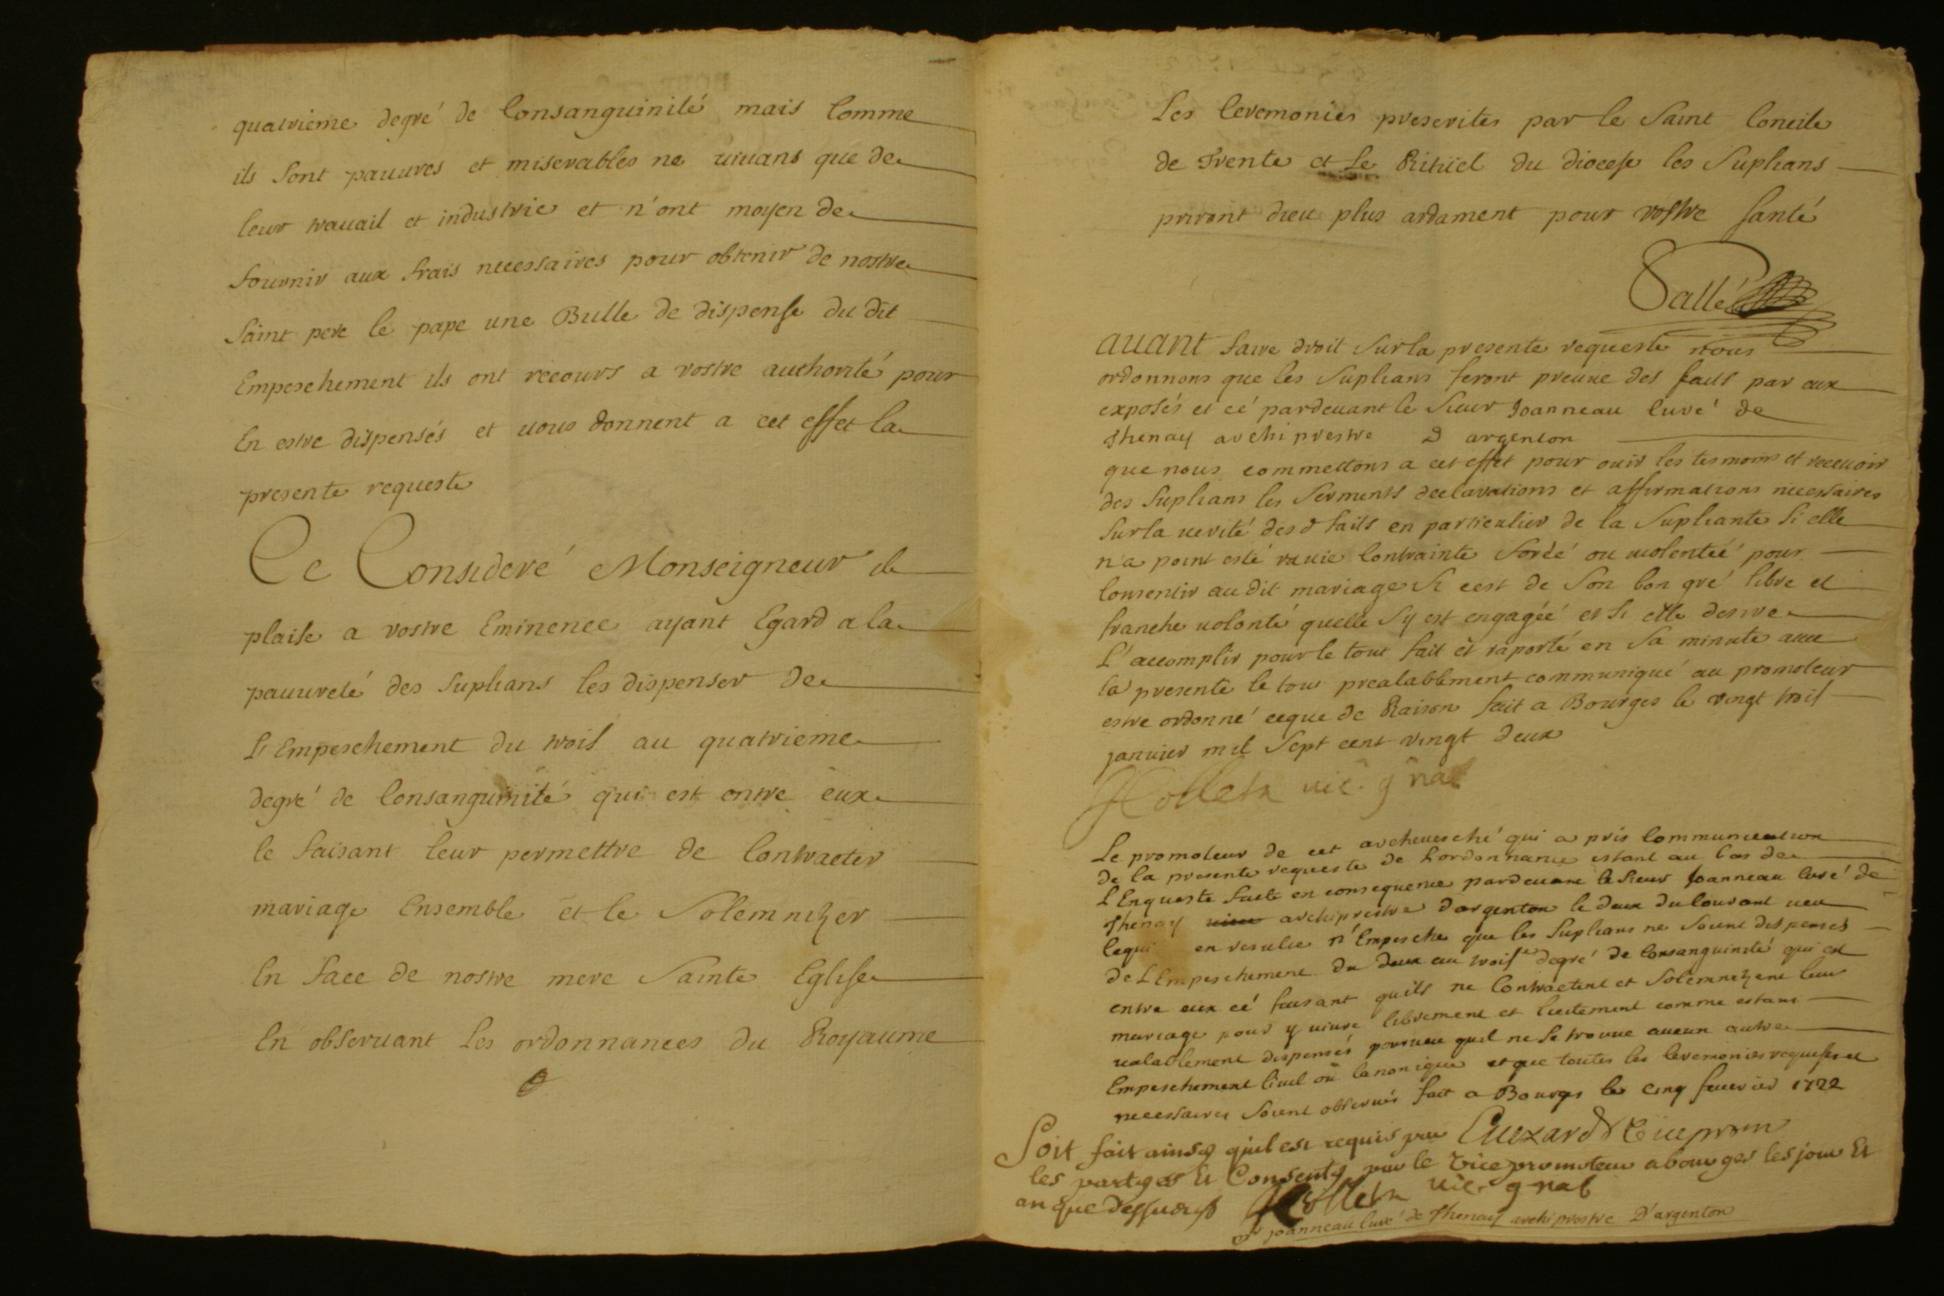 quatrieme degré de Consanguinité mais Comme
ils sont pauures et miserables ne uiuans que de
leur trauail et industrie et n'ont moyen de
fournir aux frais necessaires pour obtenir de nostre
saint pere le pape une Bulle de dispense du dit
Empeschement ils ont recours a vostre authorité pour
En estre dispensés et uous donnent a cet effet la
presente requeste
Ce Consideré Monseigneur il
plaise a vostre Eminence ayant Egard a la
pauureté des Suplians les dispenser de
L'Empeschement du trois au quatrieme
degré de Consanguinité qui est entre eux
le faisant leur permettre de Contracter
mariage Ensemble et le Solemnizer
En face de nostre mere Sainte Eglise
En obseruant les ordonnances du Royaume
Les Ceremonies prescrites par le Saint Concile
de Trente et le Rituel du diocese les Suplians
priront dieu plus ardament pour vostre santé
Sallé
auant faire droit sur la presente requeste nous
ordonnons que les Suplians feront preuue des faits par eux
exposés et cé pardeuant le Sieur Joanneau Curé de
Thenay archiprestre D argenton
que nous commettons a cet effet pour ouir les tesmoins et receuoir
des Suplians les Serments declarations et affirmations necessaires
sur la uerité desd faits en particulier de la Supliante si elle
n'a point esté rauie Contrainte forcé ou uiolentéé pour
Consentir au dit mariage si cest de son bon gré libre et
franche uolonté quelle s'y est engagéé et si elle desire
L'accomplir pour le tout fait et raporté en sa minute auec
la presente le tout prealablement communiqué au promoteur
estre ordonné ceque de Raison fait a Bourges le vingt trois
januier mil sept cent vingt deux
uic. gnal
Le promoteur de cet archeuesché qui a pris Communication
de la presente requeste de l'ordonnance estant au bas de
L'Enqueste faite en consequence pardeuant le Sieur Joanneau Curé de
Thenay archiprestre dargenton le deux du Courant ueu
cequi en resulte n'Empesche que les Suplians ne soient dispensés
de L'Empeschement du deux au trois degré de Consanguinité qui est
entre eux cé faisant quils ne Contractent et Solemnizent leur
mariage pour y uiure librement et licitement comme estans
ualablement dispensés pourueu quil ne se trouue aucun autre
Empeschement Ciuil ou Canonique et que toutes les Ceremonies requises et
necessaires soient obseruées fait a Bourges le cinq feurier 1722
Soit fait ainsy quil est requis par
les partyes Et Consenty par le Vice promoteur a bourges les jour Et
an que dessus
uic. gnal
joanneau Curé de Thenay archiprestre D'argenton